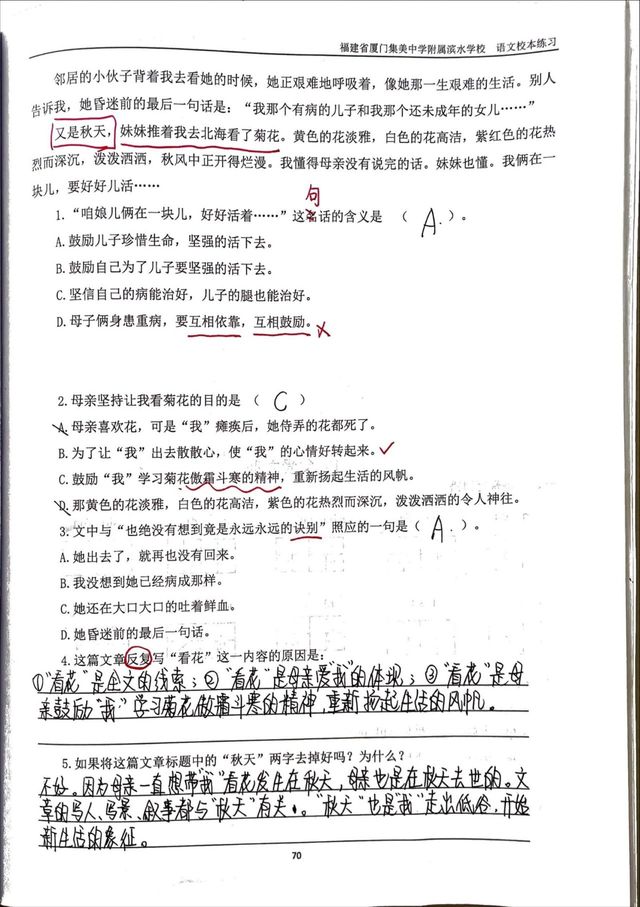 福建省厦门集美中学附属滨水学校 语文校本练习
邻居的小伙子背着我去看她的时候，她正艰难地呼吸着，像她那一生艰难的生活。别人
告诉我，她昏迷前的最后一句话是：“我那个有病的儿子和我那个还未成年的女儿……”
又是秋天，妹妹推着我去北海看了菊花。黄色的花淡雅，白色的花高洁，紫红色的花热
烈而深沉，泼泼洒洒，秋风中正开得烂漫。我懂得母亲没有说完的话。妹妹也懂。我俩在一
块儿，要好好儿活……
句
1. “咱娘儿俩在一块儿，好好活着……”这 话的含义是 （ A. ）。
A. 鼓励儿子珍惜生命，坚强的活下去。
B. 鼓励自己为了儿子要坚强的活下去。
C. 坚信自己的病能治好，儿子的腿也能治好。
D. 母子俩身患重病，要互相依靠，互相鼓励。
2. 母亲坚持让我看菊花的目的是 （ C ）
A. 母亲喜欢花，可是“我”瘫痪后，她侍弄的花都死了。
B. 为了让“我”出去散散心，使“我”的心情好转起来。
C. 鼓励“我”学习菊花傲霜斗寒的精神，重新扬起生活的风帆。
D. 那黄色的花淡雅，白色的花高洁，紫色的花热烈而深沉，泼泼洒洒的令人神往。
3. 文中与“也绝没有想到竟是永远永远的诀别”照应的一句是（ A. ）。
A. 她出去了，就再也没有回来。
B. 我没想到她已经病成那样。
C. 她还在大口大口的吐着鲜血。
D. 她昏迷前的最后一句话。
4. 这篇文章反复写“看花”这一内容的原因是：
①“看花”是全文的线索；②“看花”是母亲爱“我”的体现；③“看花”是母
亲鼓励“我”学习菊花傲霜斗寒的精神，重新扬起生活的风帆。
5. 如果将这篇文章标题中的“秋天”两字去掉好吗？为什么？
不好。因为母亲一直想带“我”看花发生在秋天，母亲也是在秋天去世的。文
章的写人、写景、叙事都与“秋天”有关。“秋天”也是“我”走出低谷，开始
新生活的象征。
70